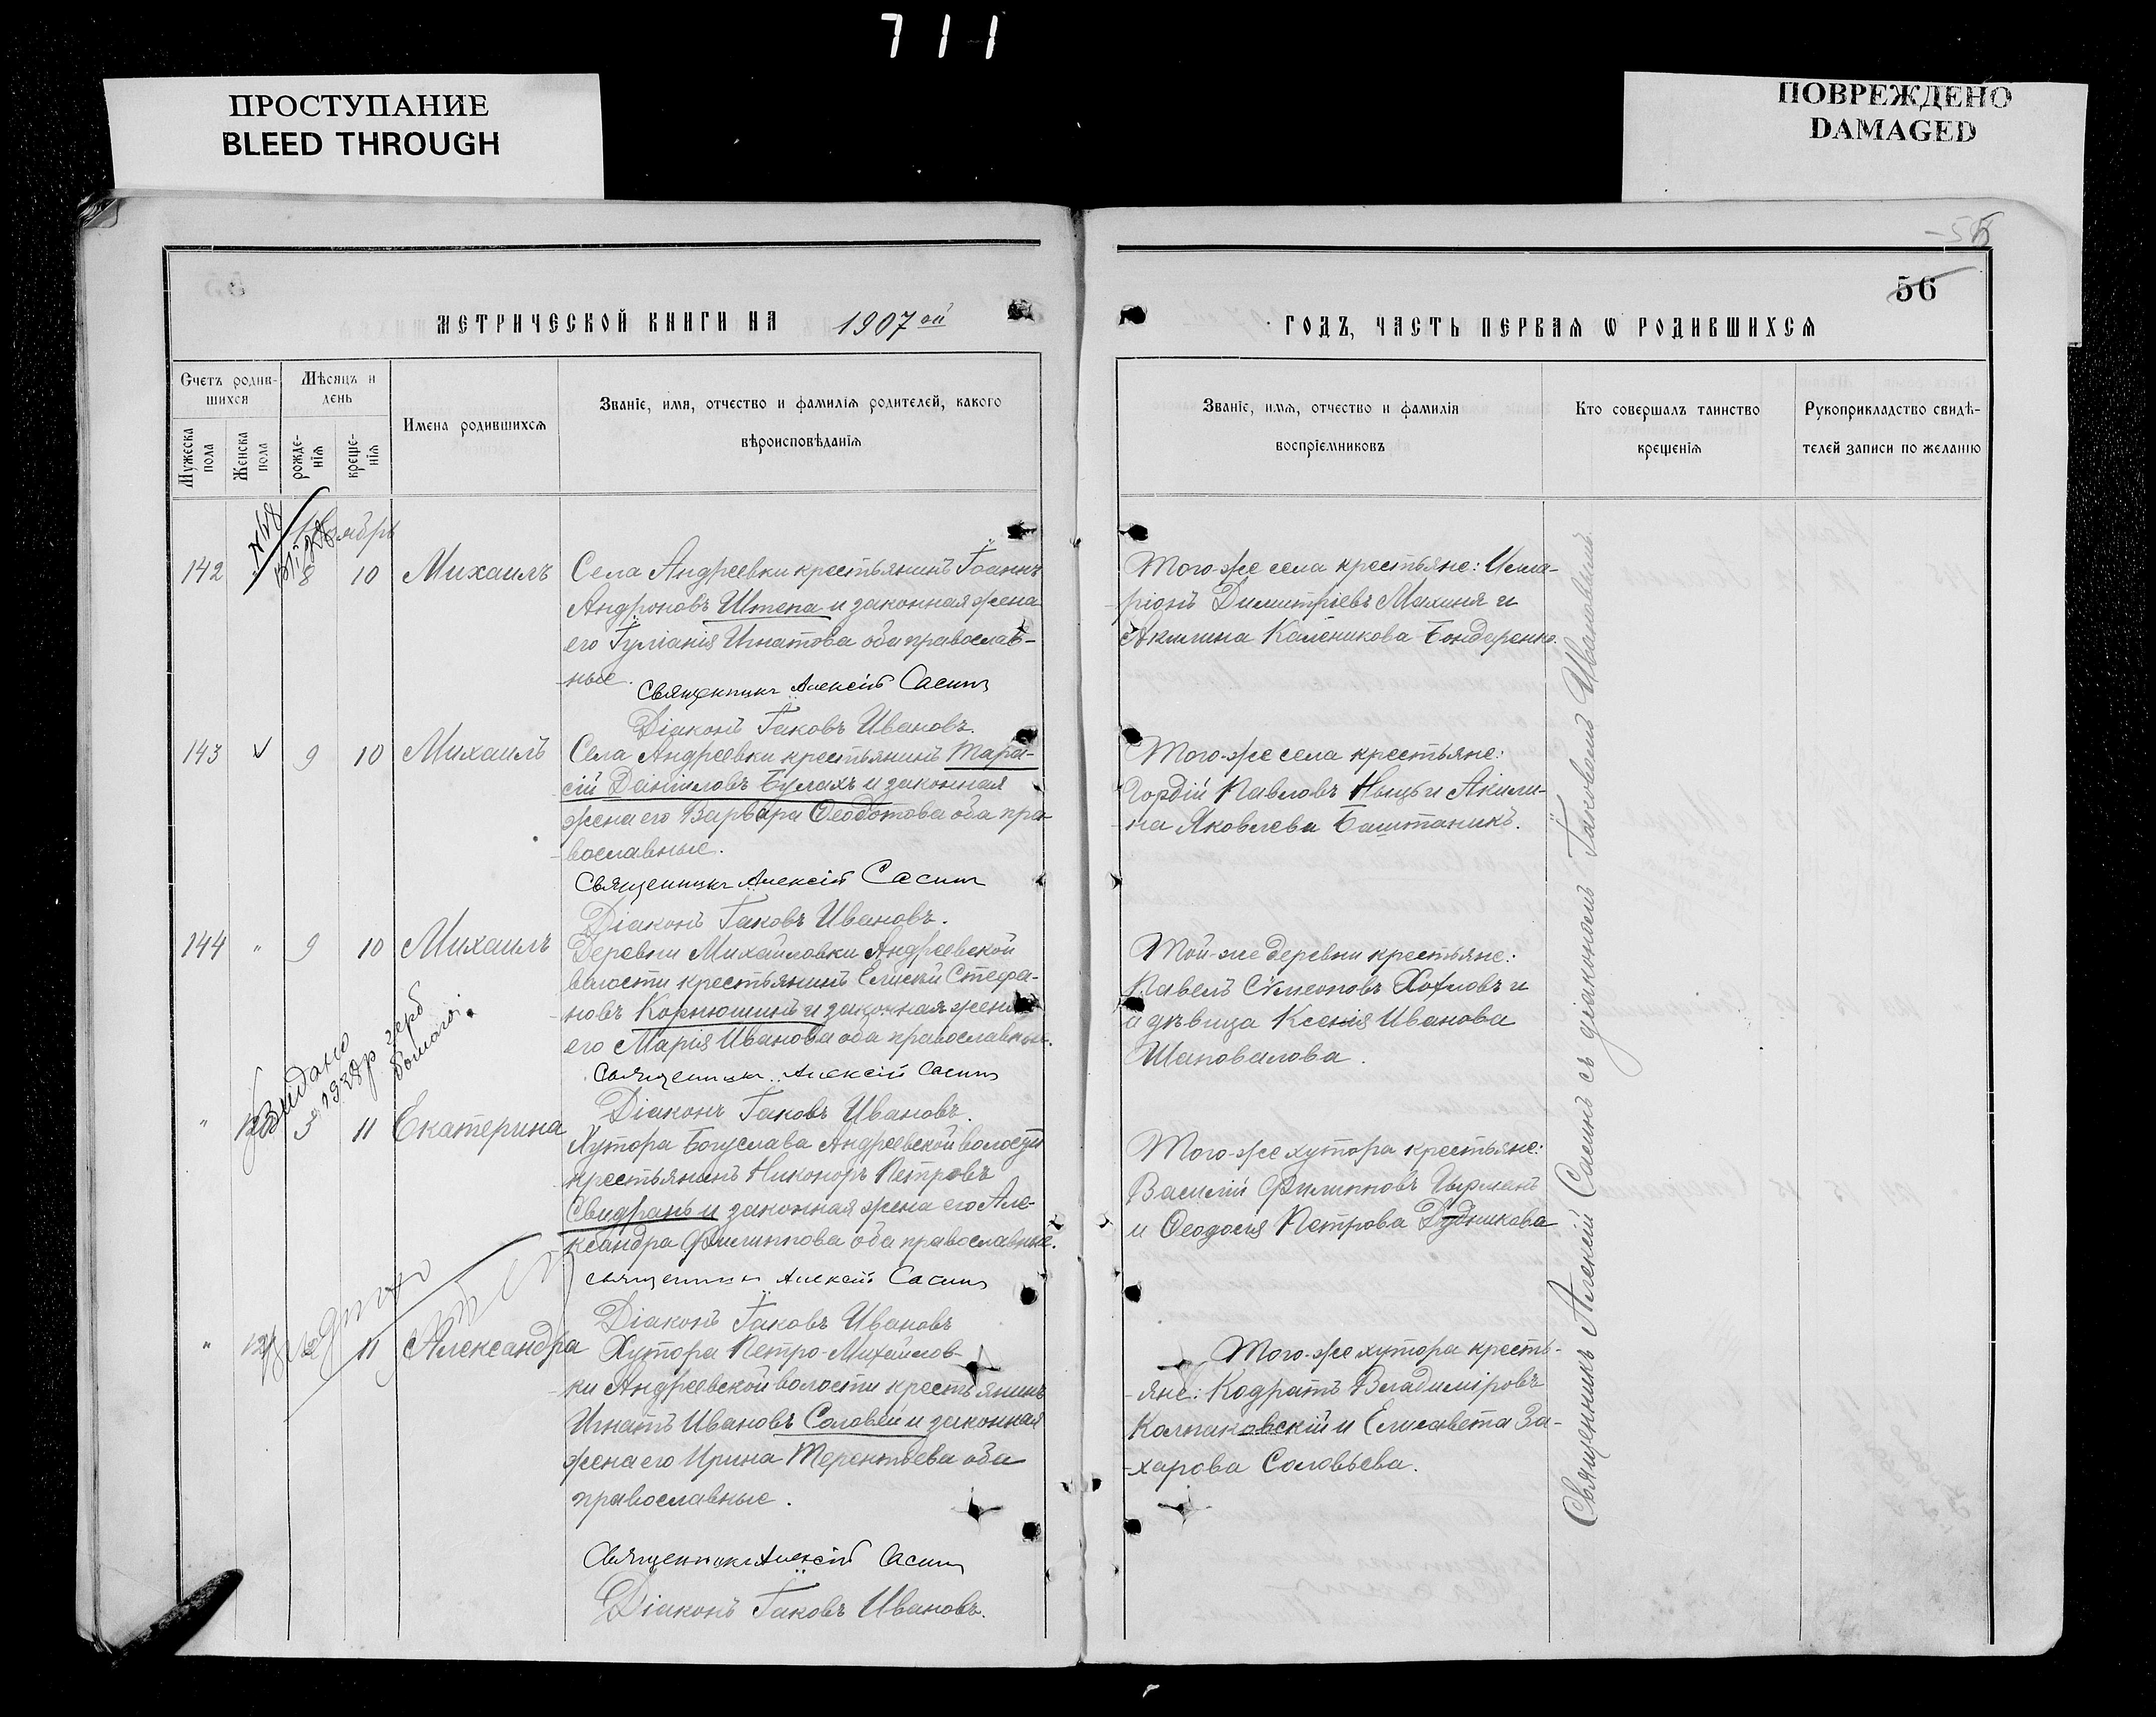 711
ПРОСТУПАНИЕ
BLEED THROUGH
ПОВРЕЖДЕНО
DAMAGED
56
МЕТРИЧЕСКОЙ КНИГИ НА 1907 ой
ГОДЪ, ЧАСТЬ ПЕРВАЯ Ѡ РОДИВШИХСЯ
Счетъ родив-
шихся
Мужеска пола
Женска пола
Мѣсяцъ и
день
рожде-
нія
креще-
нія
Имена родившихся
Званіе, имя, отчество и фамилія родителей, какого
вѣроисповѣданія
Званіе, имя, отчество и фамилія
воспріемниковъ
Кто совершалъ таинство
крещенія
Рукоприкладство свидѣ-
телей записи по желанію
142 8 10 Михаилъ
Села Андреевки крестьянинъ Іоаннъ
Андроновъ Штепа и законная жена
его Іуліанія Игнатова оба православ-
ные.
Священникъ Алексій Сасинъ
Діаконъ Іаковъ Ивановъ.
Того-же села крестьяне: Илла-
ріонъ Димитріевъ Махиня и
Акилина Каленикова Бондаренко.
143 9 10 Михаилъ
Села Андреевки крестьянинъ Тара-
сій Даніиловъ Булахъ и законная
жена его Варвара Ѳеодотова оба пра-
вославные.
Священникъ Алексій Сасинъ
Діаконъ Іаковъ Ивановъ.
Того-же села крестьяне:
Гордій Павловъ и Акили-
на Яковлева Баштаникъ.
144 " 9 10 Михаилъ
Деревни Михайловки Андреевской
волости крестьянинъ Елисей Стефа-
новъ Корнюшинъ и законная жена
его Марія Иванова оба православные.
Священникъ Алексій Сасинъ
Діаконъ Іаковъ Ивановъ.
Той-же деревни крестьяне:
Павелъ Сѵмеоновъ Хохловъ и
дѣвица Ксенія Иванова
Шаповалова.
Видано
1928 р герб
" 11 Екатерина
Хутора Богуслава Андреевской волости
крестьянинъ Никоноръ Петровъ
Свидранъ и законная жена его Але-
ксандра Филиппова оба православные.
Священникъ Алексій Сасинъ
Діаконъ Іаковъ Ивановъ
Того-же хутора крестьяне:
Василій Филипповъ
и Ѳеодосія Петрова Дудникова
" 11 Александра
Хутора Петро-Михайлов-
ки Андреевской волости крестьянинъ
Игнатъ Ивановъ Соловей и законная
жена его Ирина Терентьева оба
православные.
Священникъ Алексій Сасинъ
Діаконъ Іаковъ Ивановъ.
Того-же хутора кресть-
яне: Кодратъ Владиміровъ
Колпаковскій и Елисавета За-
харова Соловьева.
Священникъ Алексій Сасинъ съ діакономъ Іаковомъ Ивановымъ.